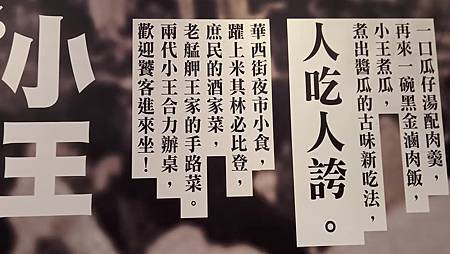 一口瓜仔湯配肉羹，
再來一碗黑金滷肉飯，
小王煮瓜，
煮出醬瓜的古味新吃法，
人吃人誇。
華西街夜市小食，
躍上米其林必比登，
庶民的酒家菜，
老艋舺王家的手路菜。
兩代小王合力辦桌，
歡迎饕客進來坐！
小王